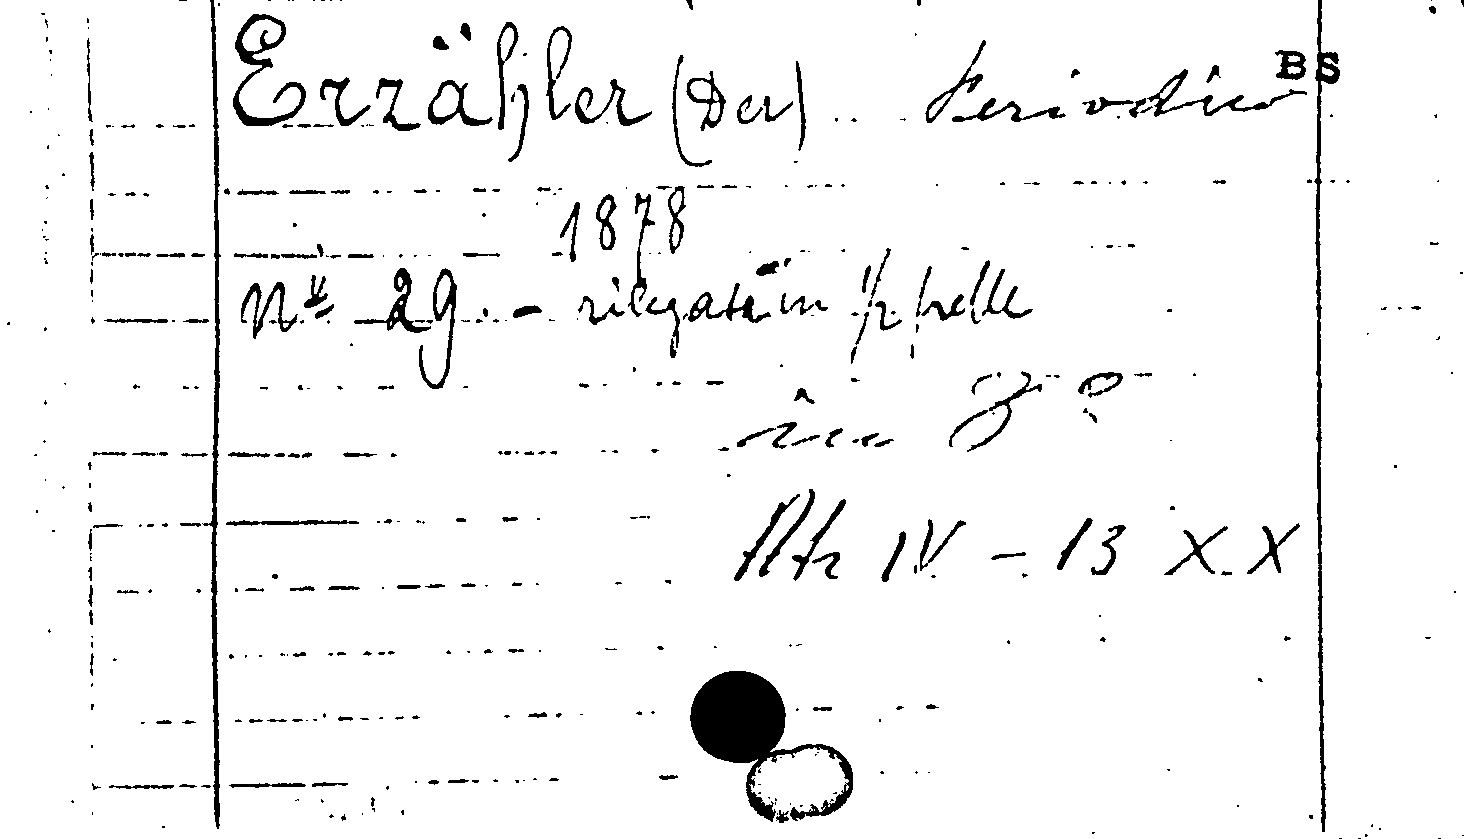 Erzähler (Der) Periodico BS
1878
Nº 29. - rilegato in ½ pelle
in 8º
Atr IV - 13 XX